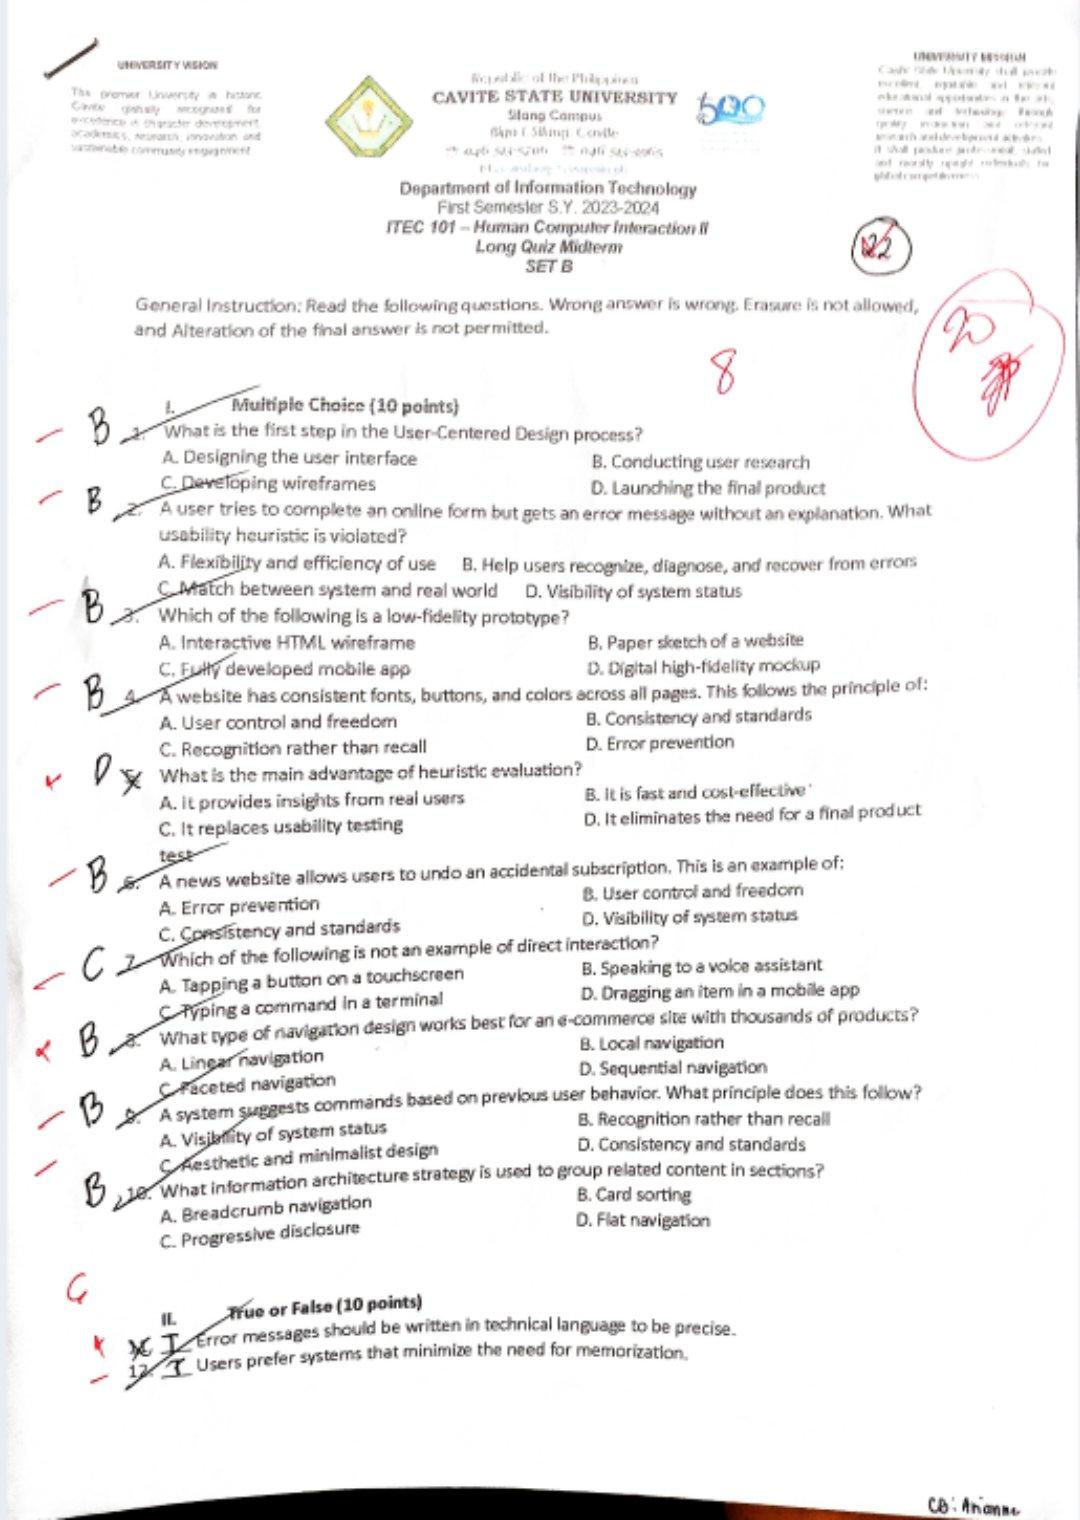 UNIVERSITY VISION
The premier University in historic
Cavite globally recognized for
excellence in character development,
academics, research, innovation and
sustainable community engagement
Republic of the Philippines
CAVITE STATE UNIVERSITY
Silang Campus
UNIVERSITY MISSION
Cavite State University shall provide
excellent, equitable and relevant
educational opportunities in the arts,
science and technology through
quality instruction and relevant
research and development activities.
It shall produce professional, skilled
and morally upright individuals for
global competitiveness
Department of Information Technology
First Semester S.Y. 2023-2024
ITEC 101 – Human Computer Interaction II
Long Quiz Midterm
SET B
22
General Instruction: Read the following questions. Wrong answer is wrong. Erasure is not allowed,
and Alteration of the final answer is not permitted.
20
8
I. Multiple Choice (10 points)
B 1. What is the first step in the User-Centered Design process?
A. Designing the user interface B. Conducting user research
C. Developing wireframes D. Launching the final product
B 2. A user tries to complete an online form but gets an error message without an explanation. What
usability heuristic is violated?
A. Flexibility and efficiency of use B. Help users recognize, diagnose, and recover from errors
C. Match between system and real world D. Visibility of system status
B 3. Which of the following is a low-fidelity prototype?
A. Interactive HTML wireframe B. Paper sketch of a website
C. Fully developed mobile app D. Digital high-fidelity mockup
B 4. A website has consistent fonts, buttons, and colors across all pages. This follows the principle of:
A. User control and freedom B. Consistency and standards
C. Recognition rather than recall D. Error prevention
D What is the main advantage of heuristic evaluation?
A. it provides insights from real users B. It is fast and cost-effective
C. It replaces usability testing D. It eliminates the need for a final product
test
B 6. A news website allows users to undo an accidental subscription. This is an example of:
A. Error prevention B. User control and freedom
C. Consistency and standards D. Visibility of system status
C 7. Which of the following is not an example of direct interaction?
A. Tapping a button on a touchscreen B. Speaking to a voice assistant
C. Typing a command in a terminal D. Dragging an item in a mobile app
B 8. What type of navigation design works best for an e-commerce site with thousands of products?
A. Linear navigation B. Local navigation
C. Faceted navigation D. Sequential navigation
B 9. A system suggests commands based on previous user behavior. What principle does this follow?
A. Visibility of system status B. Recognition rather than recall
C. Aesthetic and minimalist design D. Consistency and standards
B 10. What information architecture strategy is used to group related content in sections?
A. Breadcrumb navigation B. Card sorting
C. Progressive disclosure D. Flat navigation
II. True or False (10 points)
T Error messages should be written in technical language to be precise.
12. T Users prefer systems that minimize the need for memorization.
CB: Arianne